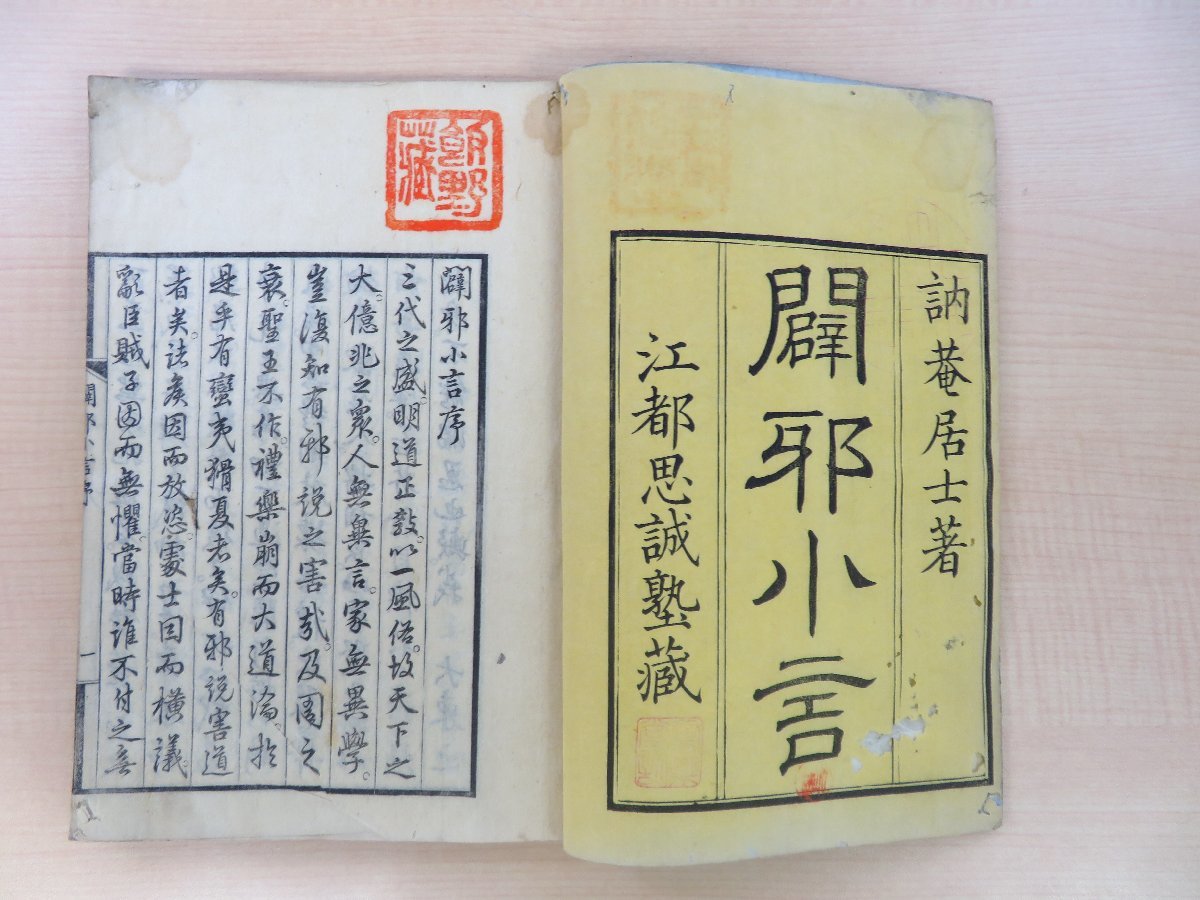 訥菴居士著
闢邪小言
江都思誠塾藏
闢邪小言序
三代之盛。明道正敎。以一風俗。故天下之
大。億兆之衆。人無異言。家無異學。
豈復知有邪說之害哉。及周之
衰。聖王不作。禮樂崩而大道淪。於
是乎有蠻夷猾夏者矣。有邪說害道
者矣。諸侯因而放恣。處士因而橫議。
亂臣賊子因而無懼。當時誰不付之無
闢邪小言序
一